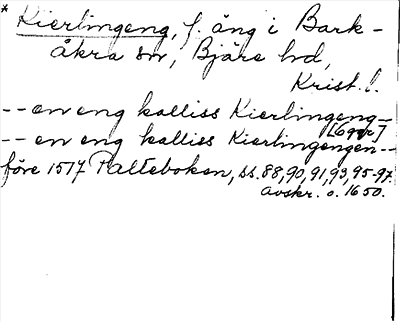 * Kierlingeng, f. äng i Bark-
åkra sn, Bjäre hd,
Krist. l.
-- en eng kalliss Kierlingeng --
[6gvr]
-- en eng kalliss Kierlingengen --
före 1517 Palteboken, ss. 88, 90, 91, 93, 95-97
avskr. o. 1650.